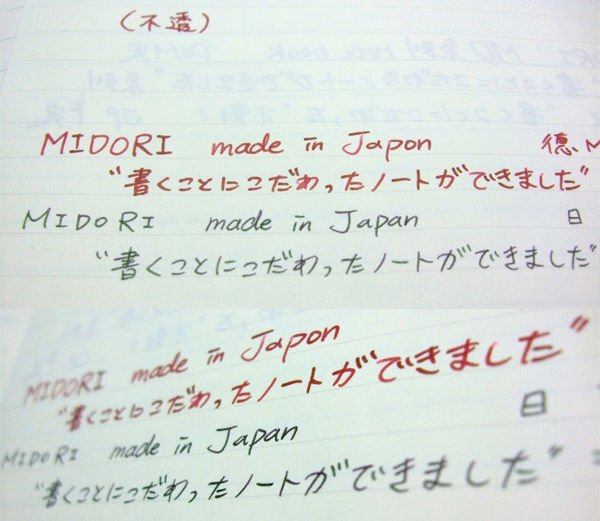 （不透）
MIDORI made in Japon 德 M
“書くことにこだわったノートができました”
MIDORI made in Japan 日
“書くことにこだわったノートができました”
MIDORI made in Japon
“書くことにこだわったノートができました”
MIDORI made in Japan 日
“書くことにこだわったノートができました”